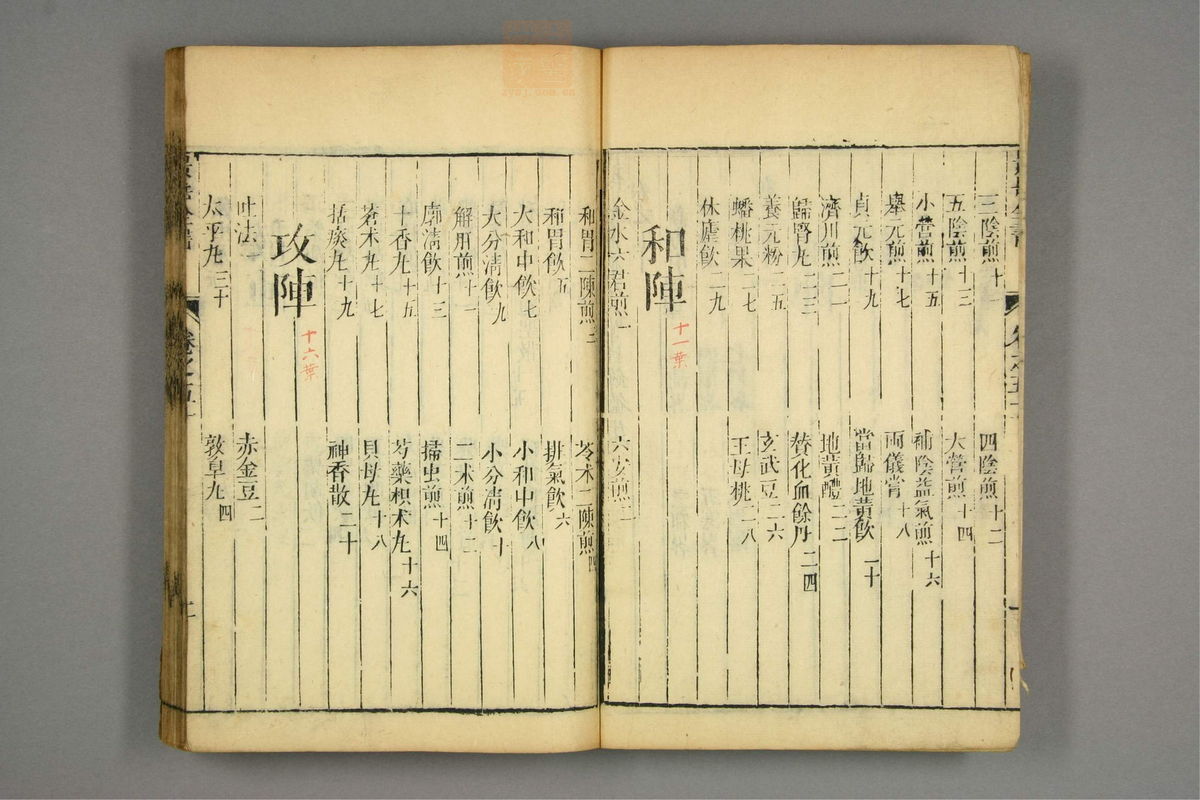 三陰煎十一　四陰煎十二
五陰煎十三　大營煎十四
小營煎十五　補陰益氣煎十六
舉元煎十七　兩儀膏十八
貞元飲十九　當歸地黃飲二十
濟川煎二一　地黃醴二二
歸腎丸二三　贊化血餘丹二四
養元粉二五　玄武豆二六
蟠桃果二七　王母桃二八
休瘧飲二九
和陣
十一葉
金水六君煎一　六安煎二
和胃二陳煎三　苓术二陳煎四
和胃飲五　排氣飲六
大和中飲七　小和中飲八
大分清飲九　小分清飲十
解肝煎十一　二术煎十二
廓清飲十三　掃虫煎十四
十香丸十五　芍藥枳术丸十六
蒼术丸十七　貝母丸十八
括痰丸十九　神香散二十
攻陣
十六葉
吐法一　赤金豆二
太平丸三十　敦阜丸四
卷之五十